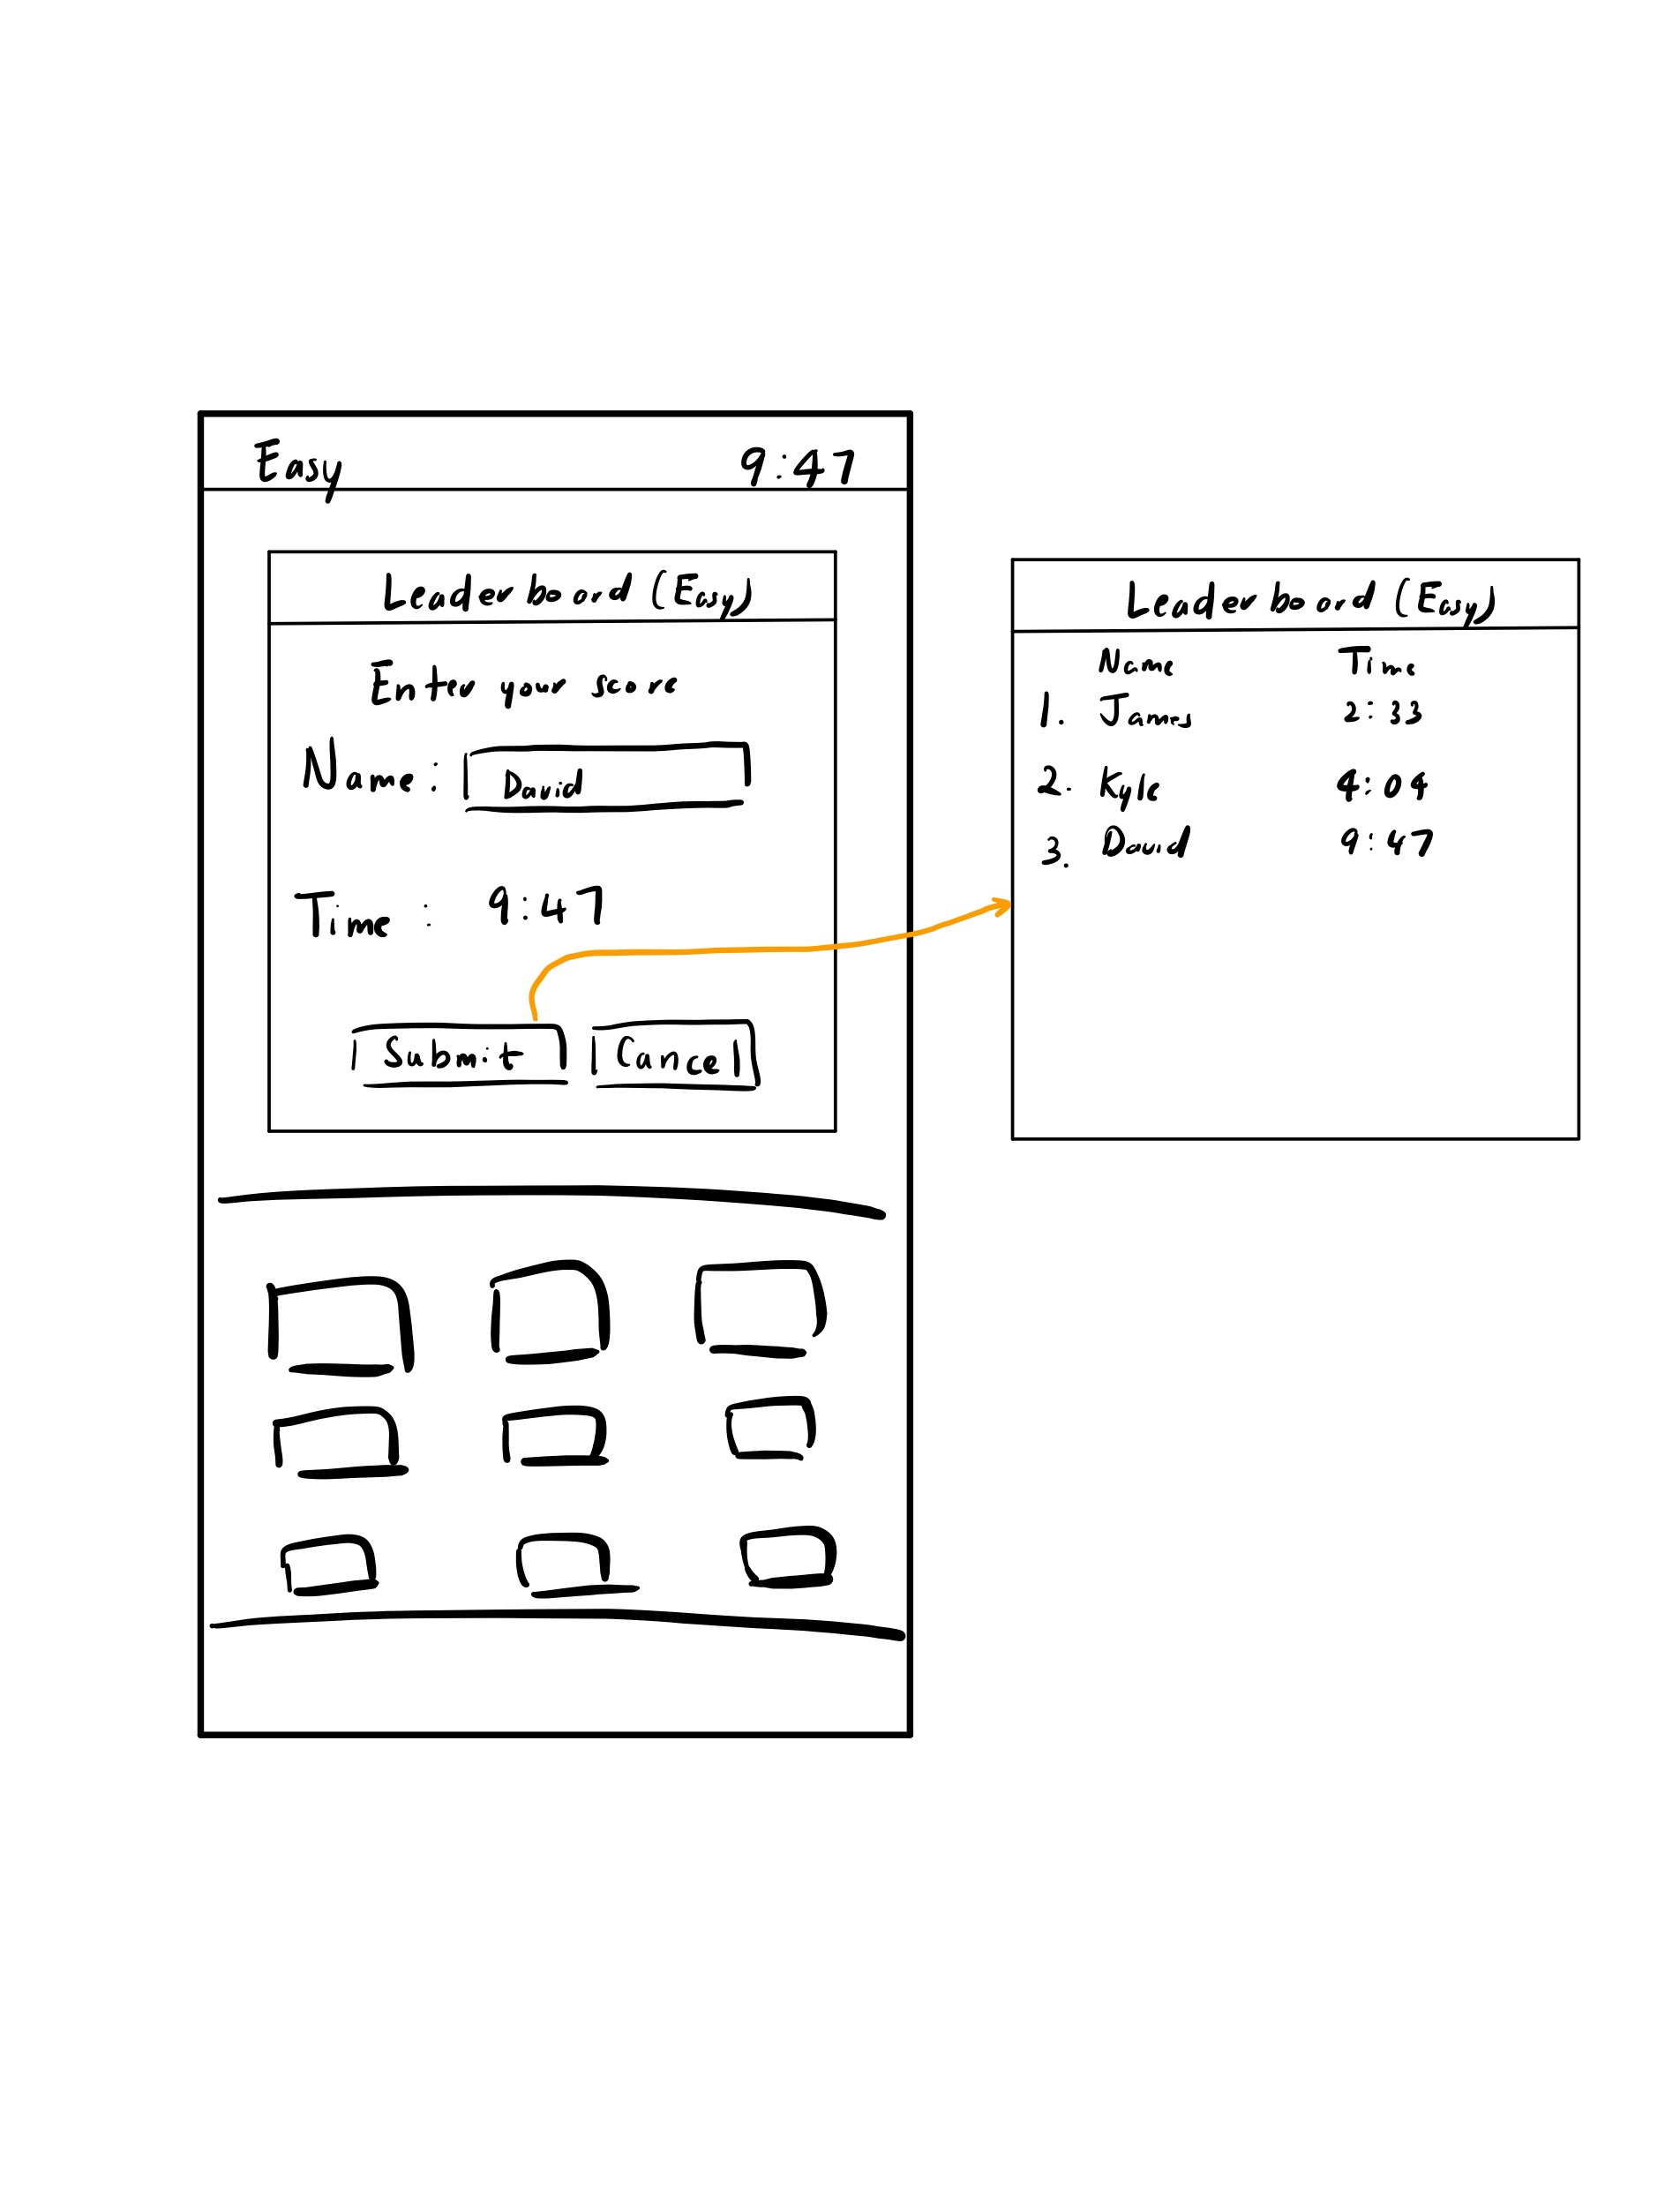 Easy 9:47
Leaderboard (Easy)
Enter your score
Name: David
Time: 9:47
Submit Cancel
Leaderboard (Easy)
Name Time
1. James 2:33
2. Kyle 4:04
3. David 9:47